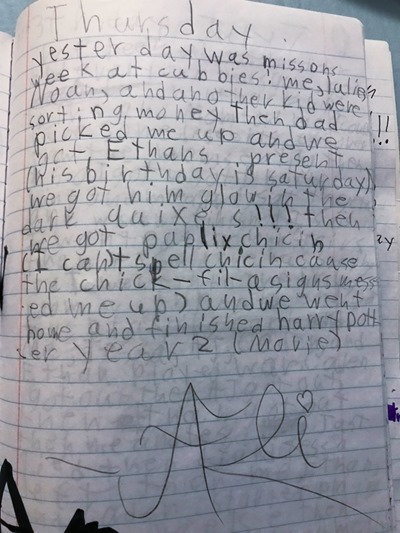 Thursday.
yesterday was missons
week at cubbies! me, Julien,
Noan, and another kid were
sorting money then, dad
picked me up and we
got Ethans present
(his birthday is saturday)
we got him glow in the
dark quixels!!! then
we got paplix chicin
(I can)t spell chicin cause
the chick-fil-a signs mess
ed me up) and we went
home and finished harry pott
er year 2 (movie)
Ali
!!
zy